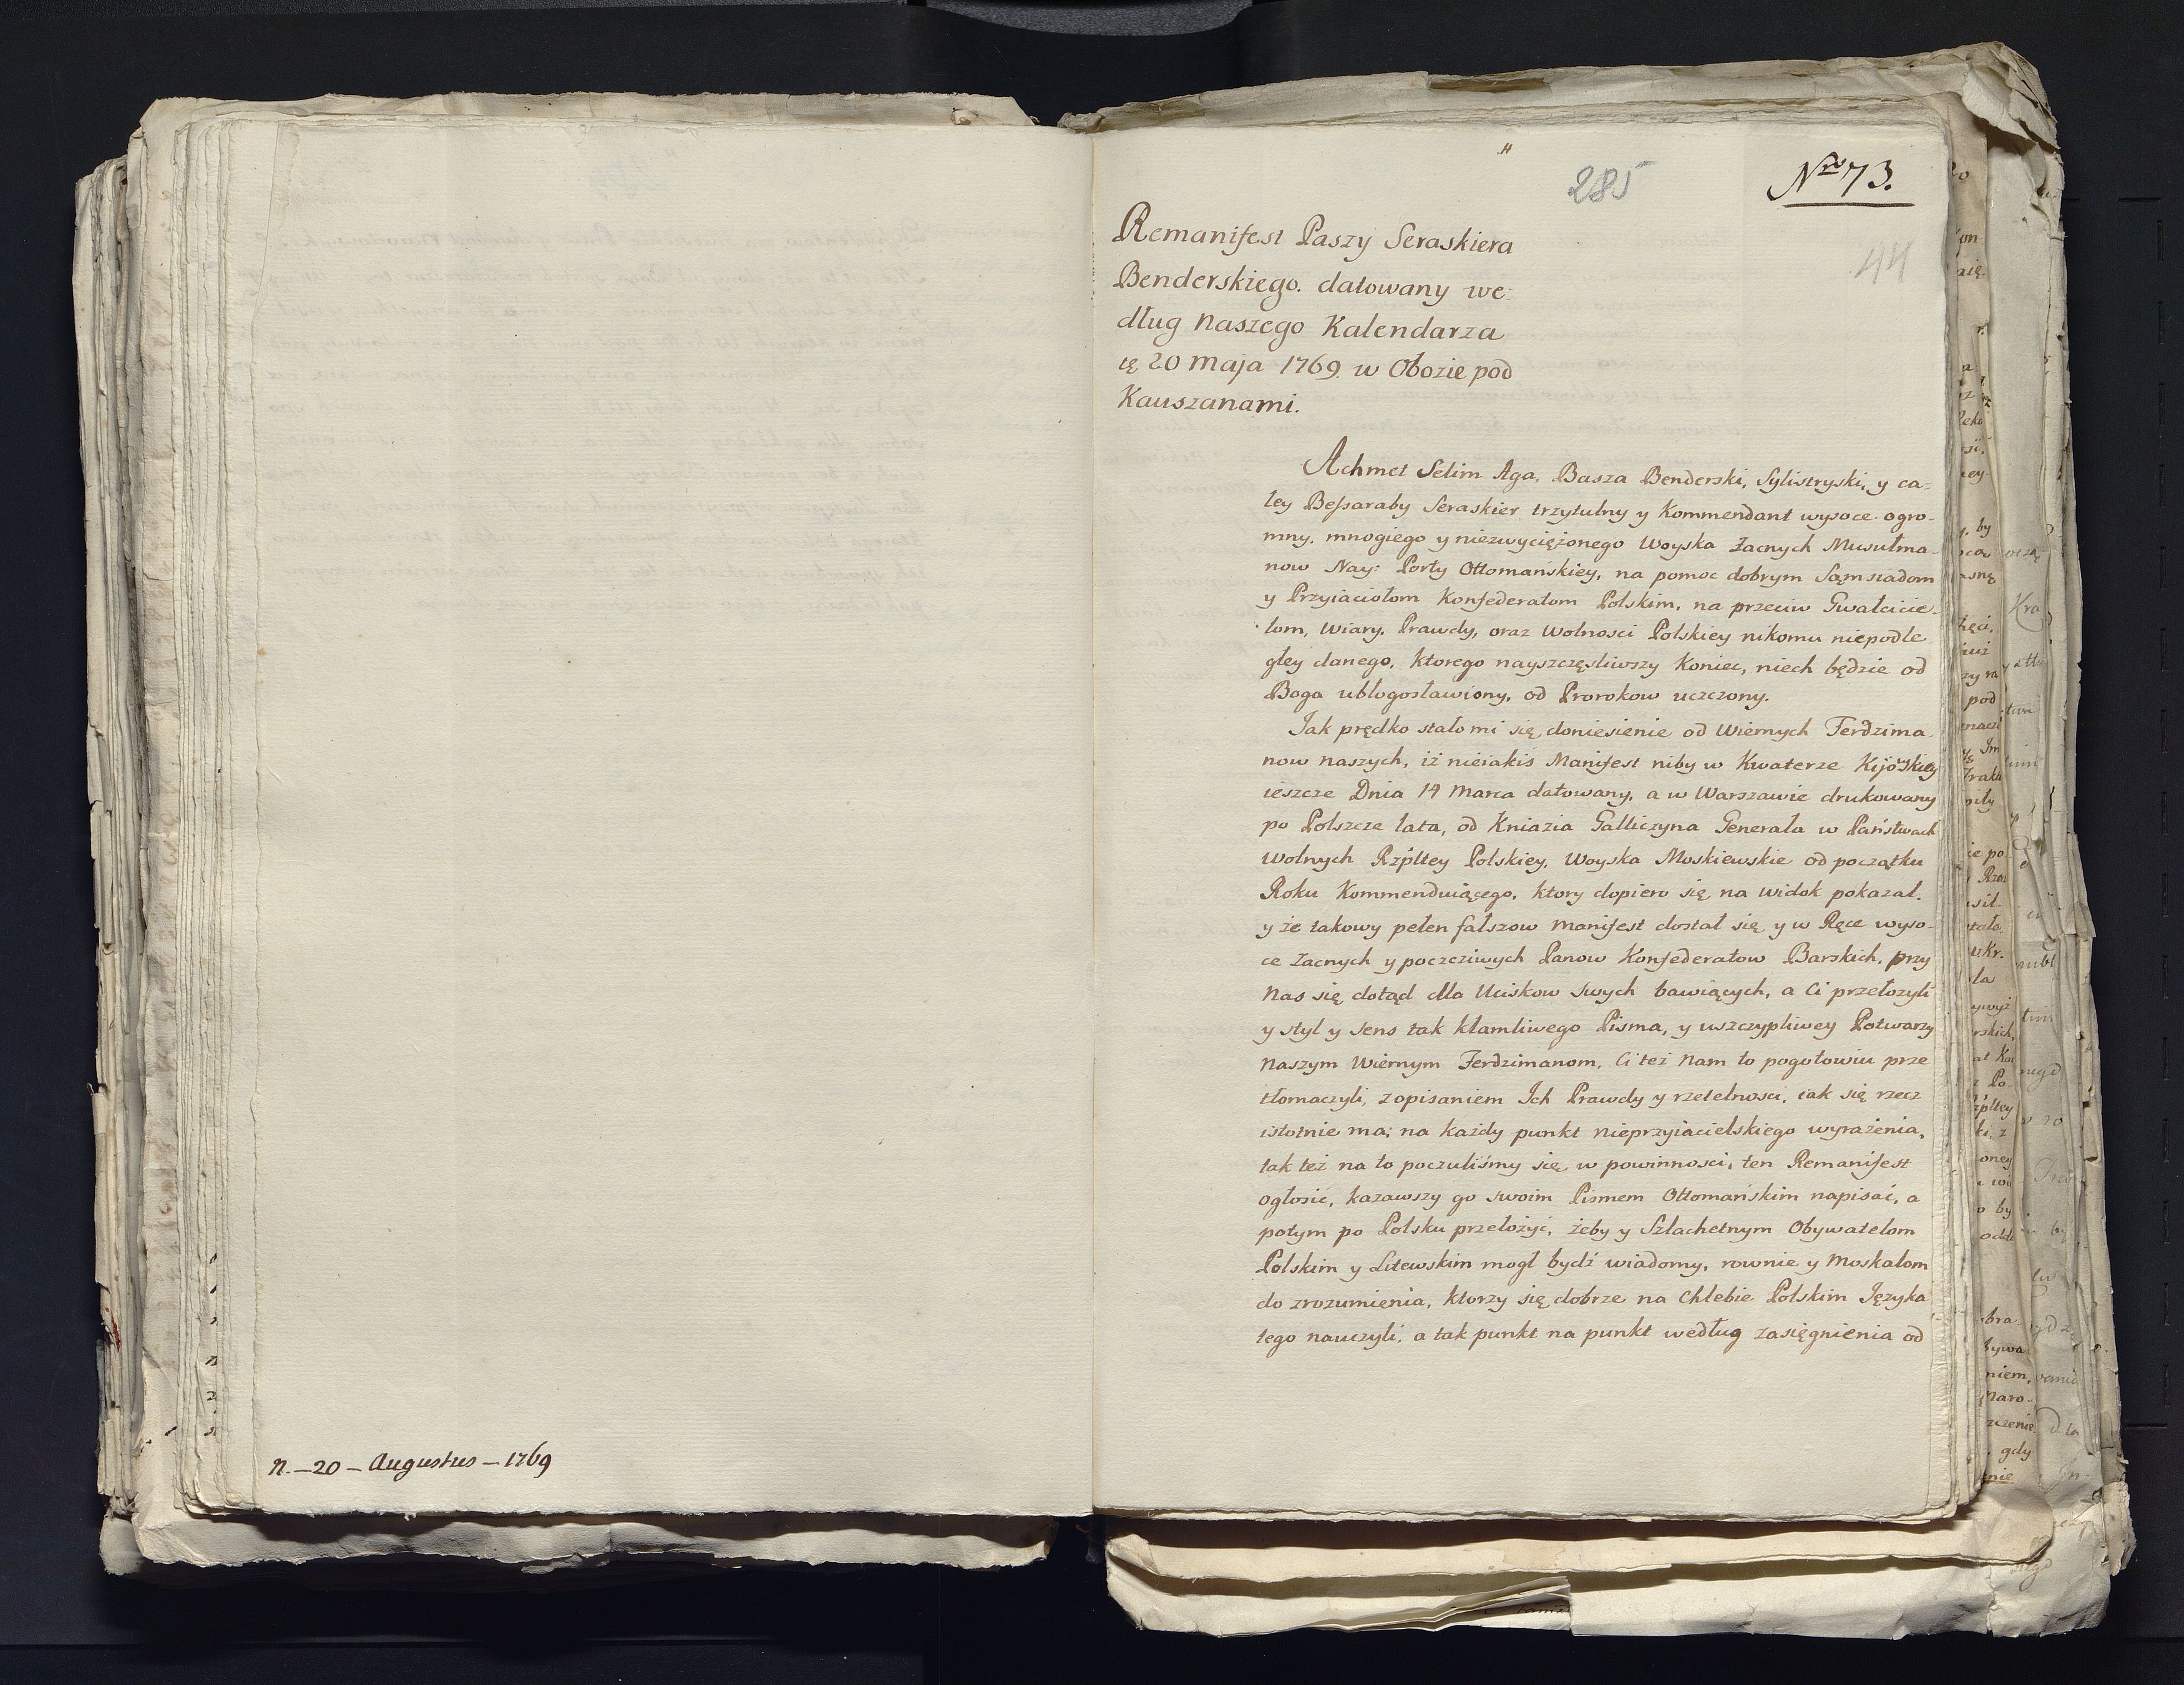 n. — 20 — Augustus — 1769
285
Nro 73.
44
Remanifest Paszy Seraskiera
Benderskiego. datowany we:
dług naszego Kalendarza
ię 20 Maja 1769. w Obozie pod
Kauszanami.
Achmet Selim Aga, Basza Benderski, Sylistryski, y ca=
łey Beſsaraby Seraskier trzytulny y Kommendant wysoce ogro-
mny, mnogiego y niezwyciężonego Woyska Zacnych Musułma-
now Nay: Porty Ottomańskiey, na pomoc dobrym Sąmsiadom
y Przyiaciołom Konfederatom Polskim, na przeciw Gwałcicie-
lom, Wiary, Prawdy, oraz Wolnosci Polskiey nikomu niepodle
głey danego, ktorego nayszczęsliwszy Koniec, niech będzie od
Boga ubłogosławiony, od Prorokow uczczony.
Jak prędko stało mi się doniesienie od Wiernych Ferdzima-
now naszych, iż nieiakiś Manifest niby w Kwaterze Kijoskiey
ieszcze Dnia 14 Marca datowany, a w Warszawie drukowany
po Polszcze lata, od Kniazia Galliczyna Generała w Państwach
Wolnych Rzpltey Polskiey, Woyska Moskiewskie od początku
Roku Kommenduiącego, ktory dopiero się na widok pokazał.
y że takowy pełen fałszow Manifest dostał się y w Ręce wyso-
ce Zacnych y poczciwych Panow Konfederatow Barskich, przy
Nas się dotąd dla Uciskow swych bawiących, a Ci przełozyli
y styl y sens tak kłamliwego Pisma, y uszczypliwey Potwarzy
Naszym Wiernym Ferdzimanom, Ci też Nam to pogotowiu prze
tłomaczyli, z opisaniem Ich Prawdy y rzetelnosci, iak się rzecz
istotnie ma; na każdy punkt nieprzyiacielskiego wyrażenia,
tak też na to poczuliśmy się w powinnosci, ten Remanifest
ogłosić, kazawszy go swoim Pismem Ottomańskim napisać, a
potym po Polsku przełożyć, żeby y Szlachetnym Obywatelom
Polskim y Litewskim mogł bydź wiadomy, rownie y Moskalom
do zrozumienia, ktorzy się dobrze na Chlebie Polskim Języka
tego nauczyli, a tak punkt na punkt według zasięgnienia od